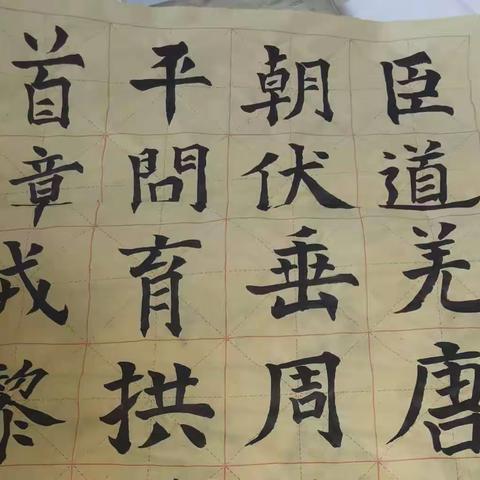 臣道羌唐
朝伏垂周
平問育拱
首章戎黎